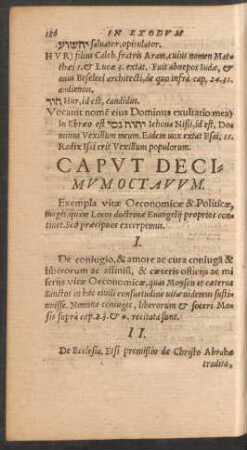 186 IN EXODVM
יהושוע saluator, opitulator.
HVR) filius Caleb. fratris Aram, cuius nomen Mat-
thæi 1. & Lucæ 3. extat. Fuit abnepos Iudæ, &
auus Beseleel architecti, de quo infrà cap. 24. 31.
audiemus.
חור Hur, id est, candidus.
Vocauit nomẽ eius Dominus exultatio mea)
In Ebræo est יהוה נסי Iehoua Nissi, id est, Do-
minus Vexillum meum. Eadem uox extat Esai. 11.
Radix Isai erit Vexillum populorum.
CAPVT DECI-
MVMOCTAVVM.
Exempla vitæ Oeconomicæ & Politicæ,
magis quàm Locos doctrinæ Euangelij proprios con-
tinet. Eò præcipuos excerpemus.
I.
De coniugio, & amore ac cura coniugũ &
liberorum ac affiniũ, & cæteris officijs ac mi
serijs vitæ Oeconomicæ, quas Moysen et cæteros
Sanctos in hac ciuili consuetudine uitæ uidemus susti-
nuisse. Nomina coniugis, liberorum & soceri Mo-
sis suprà cap. 2. 3. & 4. recitata sunt.
II.
De Ecclesia. Etsi promissio de Christo Abrahæ
tradita,